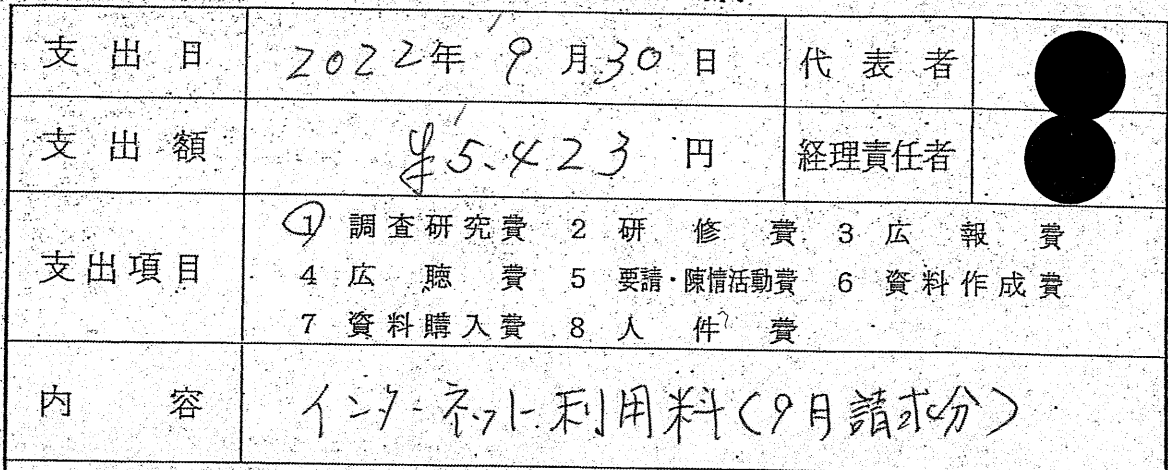 支出日 2022年 9月30日 代表者
支出額 ¥5.423円 経理責任者
支出項目 ① 調査研究費 2 研修費 3 広報費
4 広聴費 5 要請・陳情活動費 6 資料作成費
7 資料購入費 8 人件費
内容 インターネット利用料(9月請求分)